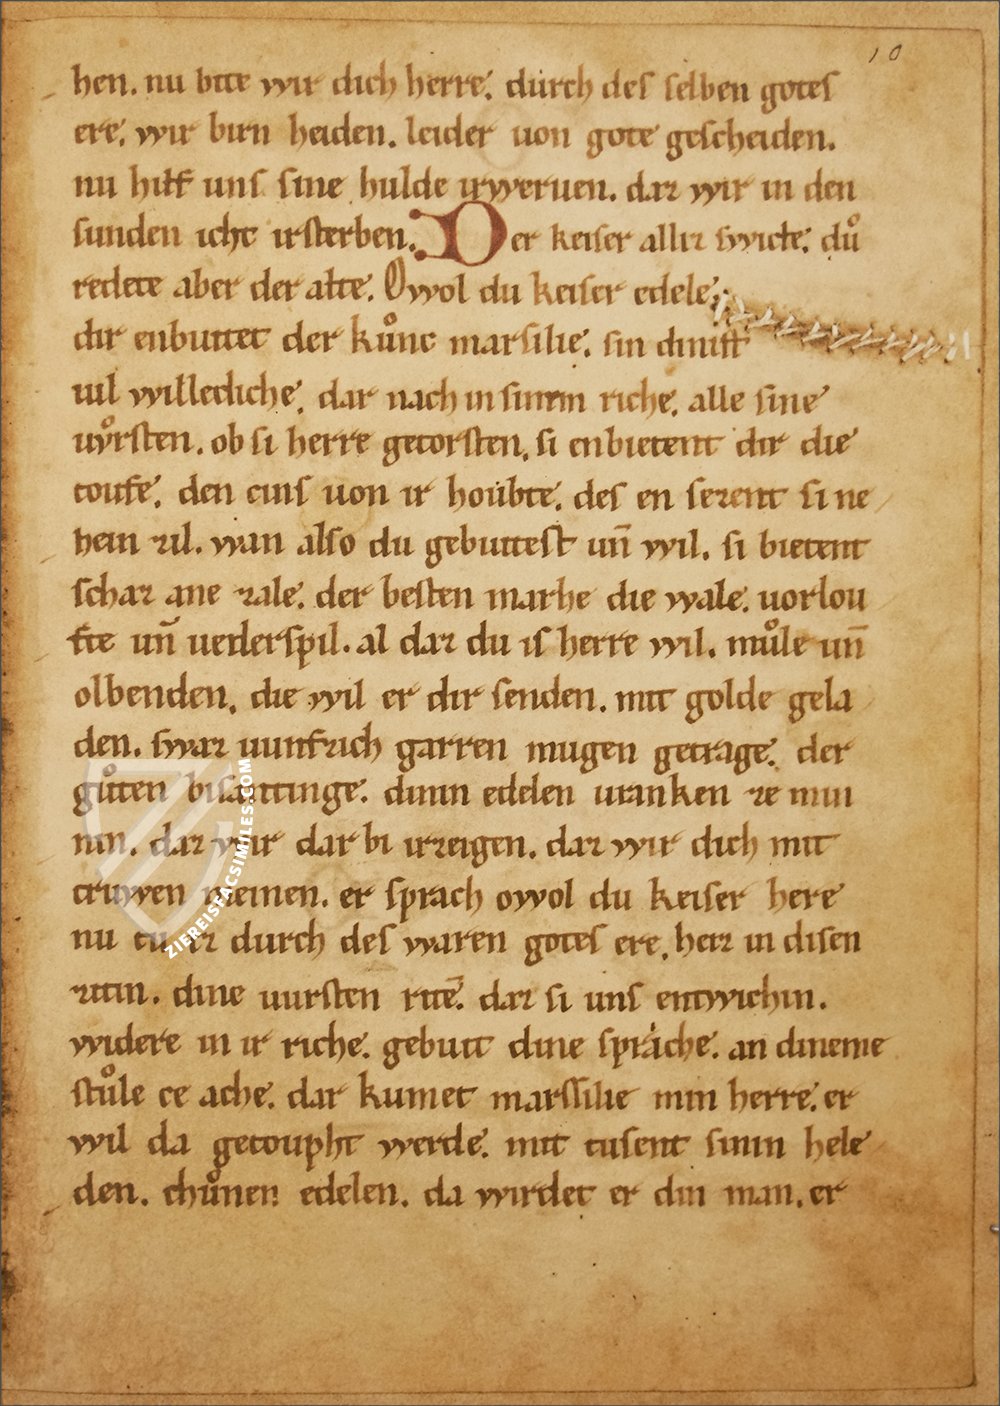 10
hen. nu bite wir dich herre. durch des selben gotes
ere. wir birn heiden. leider uon gote gescheiden.
nu hilf uns sine hulde irweruen. daz wir in den
sunden icht irsterben. Der keiser allir swicte. duͦ
redete aber der alte. Owol du keiser edele.
dir enbuttet der kuͦnc marsilie. sin dinist
uil willecliche. dar nach in sinem riche. alle sine
uŷrsten. ob si herre getorsten. si enbietent dir die
toufe. den cins uon ir houbte. des en sezent si ne
hein zil. wan also du gebuttest un̄ wil. si bietent
schaz ane zale. der besten marhe die wale. uorlou
fte un̄ uederspil. al daz du is herre wil. muͦle un̄
olbenden. die wil er dir senden. mit golde gela
den. swaz uunfzich garren mugen getrage. der
guͦten bisantinge. dinin edelen uranken ze min
nin. daz wir dar bi irzeigen. daz wir dich mit
truwen meinen. er sprach owol du keiser here
nu tu iz durch des waren gotes ere. heiz in disen
zitin. dine uursten rite. daz si uns entwichin.
widere in ir riche. gebuit dine sprâche. an dineme
stuͦle ce ache. dar kumet marssilie min herre. er
wil da getoupht werde. mit tusent sinin hele
den. chuͦnen edelen. da wirdet er din man. er
ZIEREISFACSIMILES.COM